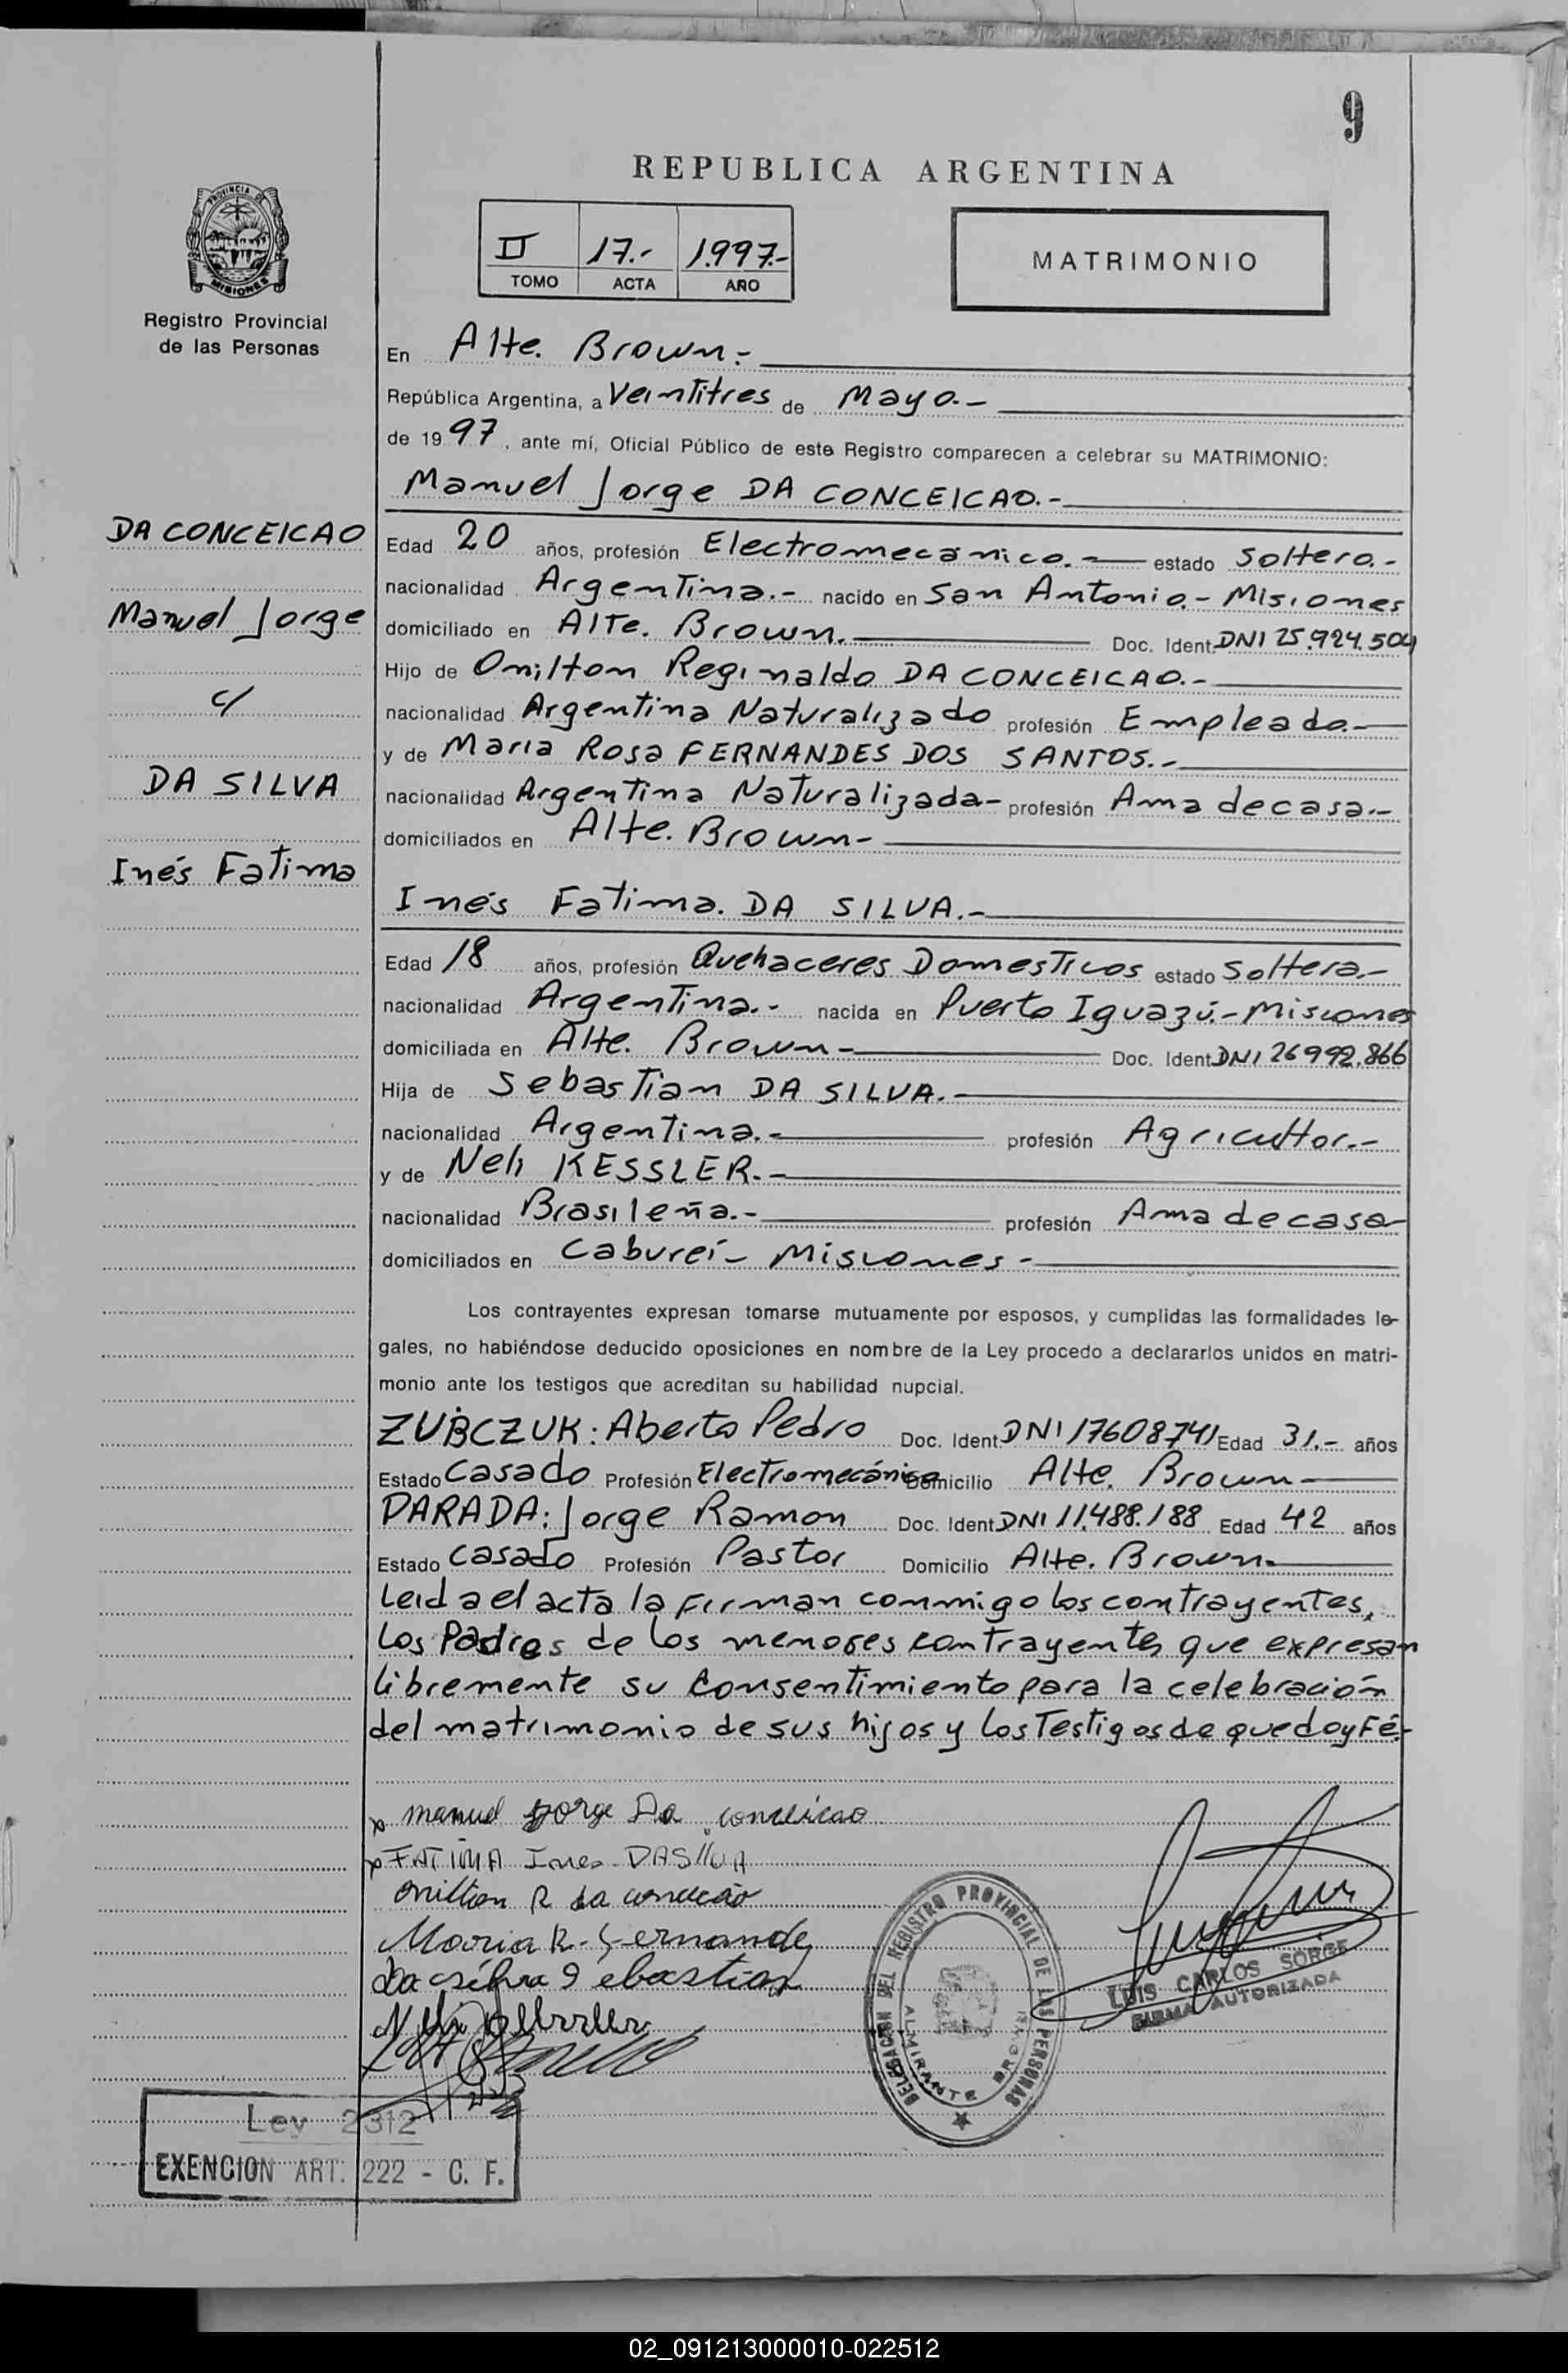 9
REPUBLICA ARGENTINA
PROVINCIA DE
MISIONES
Registro Provincial
de las Personas
II 17.- 1.997.-
TOMO ACTA AÑO
MATRIMONIO
En Alte. Brown.-
República Argentina, a Veintitres de Mayo.-
de 1997, ante mí, Oficial Público de este Registro comparecen a celebrar su MATRIMONIO:
Manuel Jorge DA CONCEICAO.-
DA CONCEICAO
Manuel Jorge
c/
DA SILVA
Inés Fatima
Edad 20 años, profesión Electromecanico.- estado Soltero.-
nacionalidad Argentina.- nacido en San Antonio.- Misiones
domiciliado en Alte. Brown. Doc. Ident. DNI 25.924.504
Hijo de Onilton Reginaldo DA CONCEICAO.-
nacionalidad Argentina Naturalizado profesión Empleado.-
y de Maria Rosa FERNANDES DOS SANTOS.-
nacionalidad Argentina Naturalizada- profesión Ama de casa.-
domiciliados en Alte. Brown-
Inés Fatima. DA SILVA.-
Edad 18 años, profesión Quehaceres Domesticos estado Soltera.-
nacionalidad Argentina.- nacida en Puerto Iguazú.- Misiones
domiciliada en Alte. Brown- Doc. Ident. DNI 26992.866
Hija de Sebastian DA SILVA.-
nacionalidad Argentina.- profesión Agricultor.-
y de Neli KESSLER.-
nacionalidad Brasileña.- profesión Ama de casa-
domiciliados en Cabureí- Misiones-
Los contrayentes expresan tomarse mutuamente por esposos, y cumplidas las formalidades le-
gales, no habiéndose deducido oposiciones en nombre de la Ley procedo a declararlos unidos en matri-
monio ante los testigos que acreditan su habilidad nupcial.
ZUBCZUK: Aberto Pedro Doc. Ident. DNI 17608741 Edad 31.- años
Estado Casado Profesión Electromecánico Domicilio Alte. Brown-
PARADA: Jorge Ramon Doc. Ident. DNI 11.488.188 Edad 42 años
Estado Casado Profesión Pastor Domicilio Alte. Brown-
Leida el acta la firman conmigo los contrayentes,
los Padres de los menores contrayentes que expresan
libremente su consentimiento para la celebración
del matrimonio de sus hijos y los Testigos de que doy Fé.-
x manuel jorge Da conceicao
x FATIMA Ines DASilVA
onilton R da conceicão
Maria R. Fernande
Da silva Sebastian
DELEGACION DEL REGISTRO PROVINCIAL DE LAS PERSONAS
ALMIRANTE BROWN
LUIS CARLOS SORGE
FIRMA AUTORIZADA
Ley 2312
EXENCION ART. 222 - C. F.
02_091213000010-022512